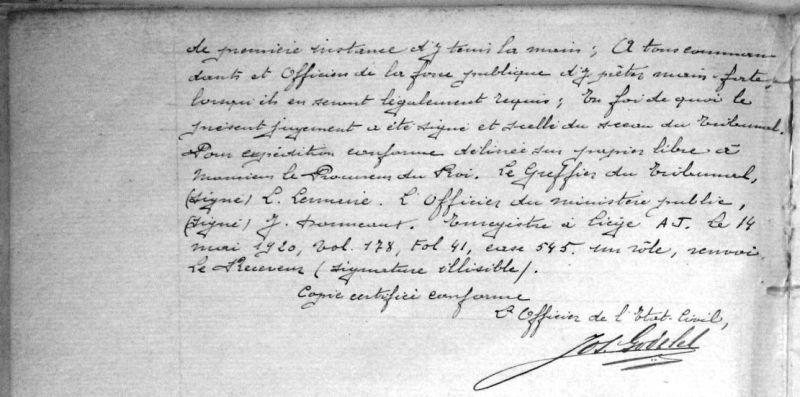 de première instance d'y tenir la main ; A tous comman
dants et Officiers de la force publique d'y prêter main-forte,
lorsqu'ils en seront légalement requis ; En foi de quoi le
présent jugement a été signé et scellé du sceau du Tribunal.
Pour expédition conforme délivrée sur papier libre à
Monsieur le Procureur du Roi. Le Greffier du Tribunal,
(signé) L. Lemaire. L'Officier du ministère public,
(signé) J. Enregistré à Liège A.J. le 14
mai 1920, Vol. 178, Fol 41, case 545. un rôle, renvoi
Le Receveur (signature illisible).
Copie certifiée conforme
L'Officier de l'Etat-Civil,
Jos.